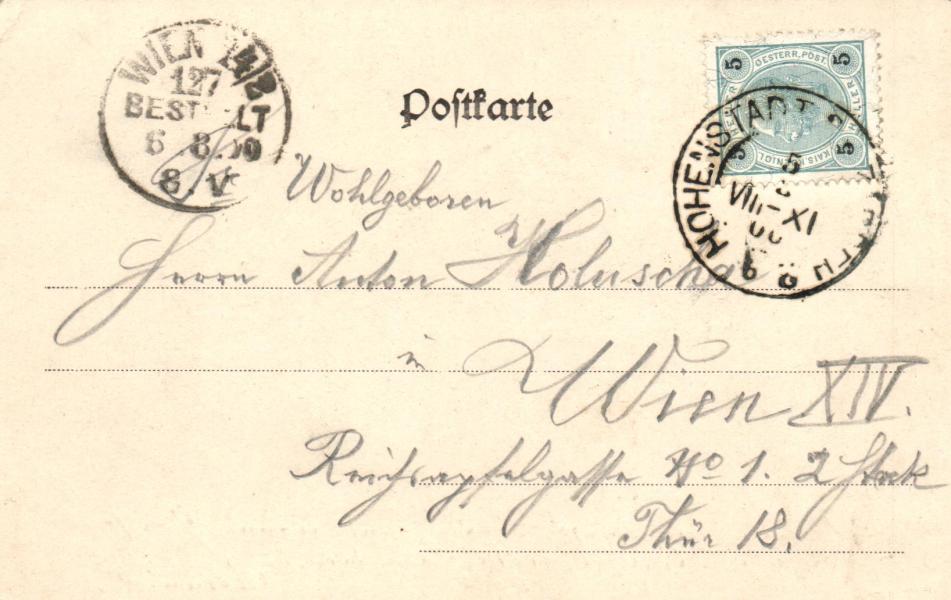 WIEN 14/2
127
BESTELLT
6 8.00
8.V
Postkarte
5 OESTERR. POST. 5
5 KAIS. KÖNIGL. 5
HOHENSTADT
5
VIII-XI
00
Wohlgeboren
Herrn Anton Holuscha
in Wien XIV.
Reichsapfelgasse No 1. 2 Stock
Thür 18.